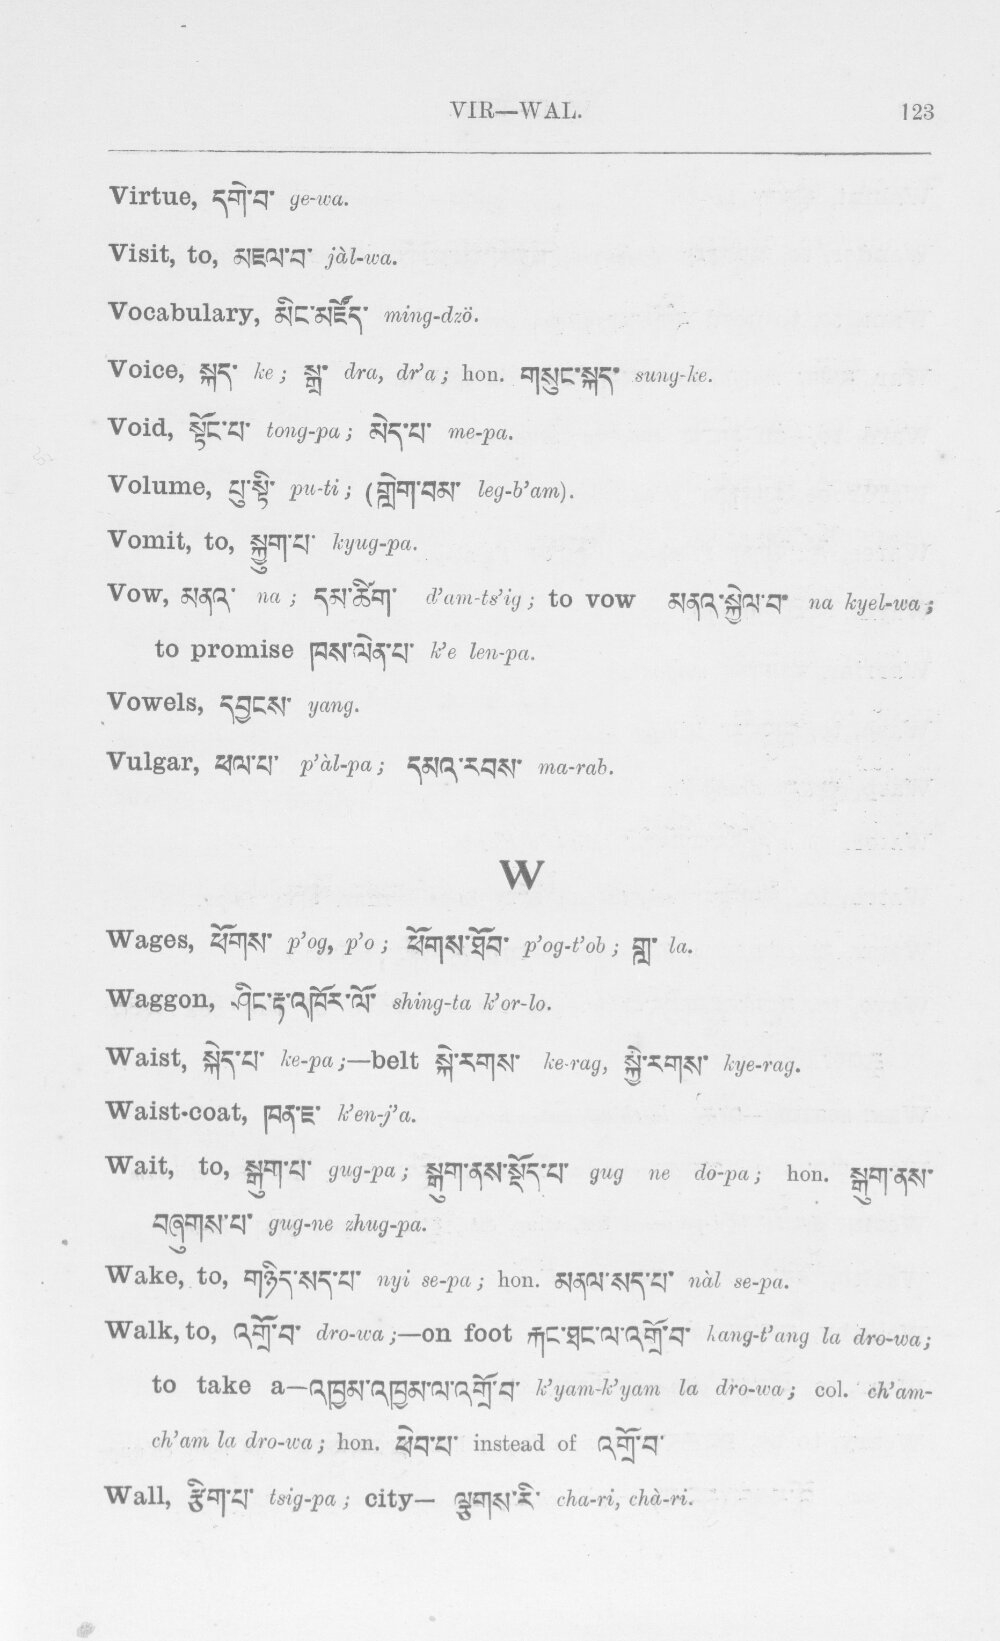 VIR—WAL. 123
Virtue, དགེ་བ་ ge-wa.
Visit, to, མཇལ་བ་ jàl-wa.
Vocabulary, མིང་མཛོད་ ming-dzö.
Voice, སྐད་ ke; སྒྲ་ dra, dr’a; hon. གསུང་སྐད་ sung-ke.
Void, སྟོང་པ་ tong-pa; མེད་པ་ me-pa.
Volume, པུ་སྟི་ pu-ti; (གླེག་བམ་ leg-b’am).
Vomit, to, སྐྱུག་པ་ kyug-pa.
Vow, མནའ་ na; དམ་ཚིག་ d’am-ts’ig; to vow མནའ་སྐྱེལ་བ་ na kyel-wa;
to promise ཁས་ལེན་པ་ k’e len-pa.
Vowels, དབྱངས་ yang.
Vulgar, ཕལ་པ་ p’àl-pa; དམའ་རབས་ ma-rab.
W
Wages, ཕོགས་ p’og, p’o; ཕོགས་ཐོབ་ p’og-t’ob; གླ་ la.
Waggon, ཤིང་རྟ་འཁོར་ལོ་ shing-ta k’or-lo.
Waist, སྐེད་པ་ ke-pa;—belt སྐེ་རགས་ ke-rag, སྐྱེ་རགས་ kye-rag.
Waist-coat, ཁན་ཇ་ k’en-j’a.
Wait, to, སྒུག་པ་ gug-pa; སྒུག་ནས་སྡོད་པ་ gug ne do-pa; hon. སྒུག་ནས་
བཞུགས་པ་ gug-ne zhug-pa.
Wake, to, གཉིད་སད་པ་ nyi se-pa; hon. མནལ་སད་པ་ nàl se-pa.
Walk, to, འགྲོ་བ་ dro-wa;—on foot རྐང་ཐང་ལ་འགྲོ་བ་ kang-t’ang la dro-wa;
to take a—འཁྱམ་འཁྱམ་ལ་འགྲོ་བ་ k’yam-k’yam la dro-wa; col. ch’am-
ch’am la dro-wa; hon. ཕེབ་པ་ instead of འགྲོ་བ་
Wall, རྩིག་པ་ tsig-pa; city— ལྕགས་རི་ cha-ri, chà-ri.